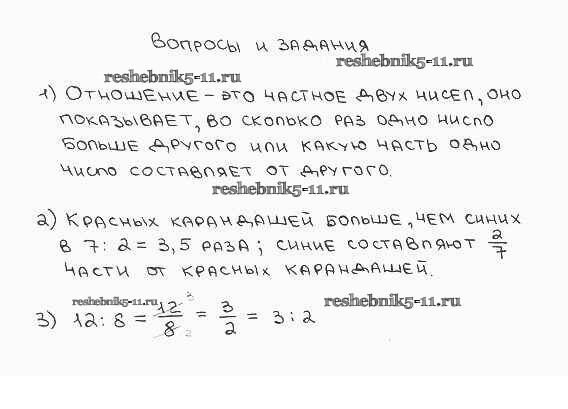 Вопросы и задания
reshebnik5-11.ru
reshebnik5-11.ru
1) Отношение – это частное двух чисел, оно
показывает, во сколько раз одно число
больше другого или какую часть одно
число составляет от другого.
reshebnik5-11.ru
2) Красных карандашей больше, чем синих
в 7 : 2 = 3,5 раза ; синие составляют 2/7
части от красных карандашей.
reshebnik5-11.ru
reshebnik5-11.ru
3) 12 : 8 = 12/8 3 2 = 3/2 = 3 : 2